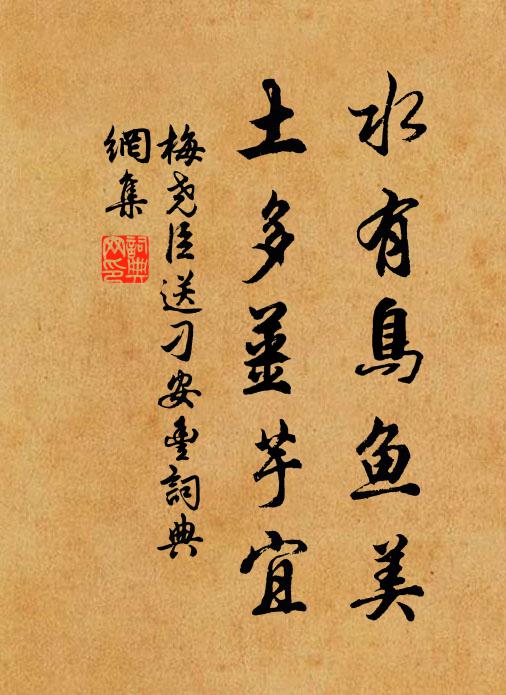 水有鳥魚美
土多薑芋宜
梅尧臣送刁安豐詞典
網集
詞典
网印